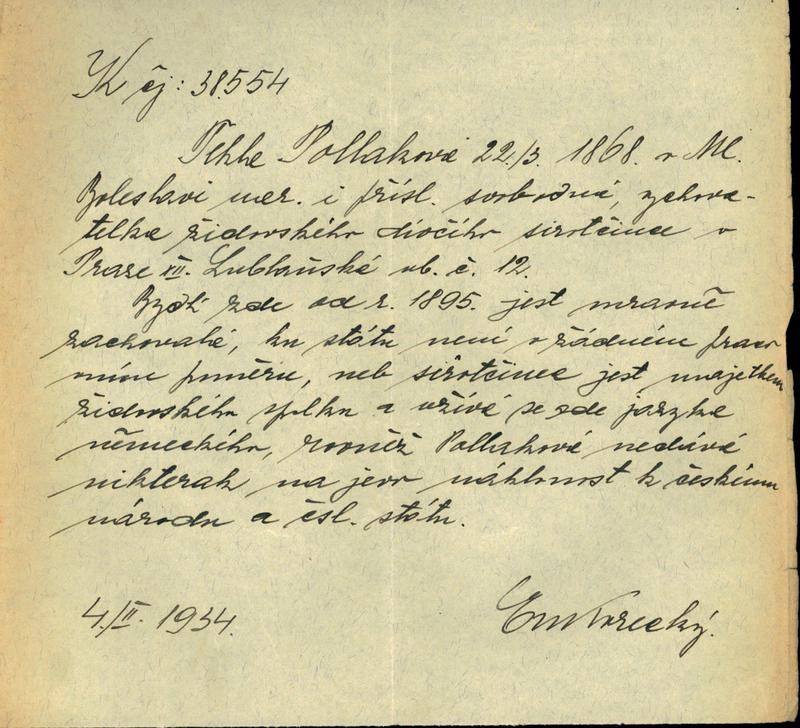 K čj: 38554
Pollaková 22./3. 1868. v Ml.
Boleslavi nar. i přísl. svobodná, vychova-
telka židovského dívčího sirotčince v
Praze XII. Lublaňská ul. č. 12.
Bydlí zde od r. 1895. jest mravně
zachovalá, ku státu není v žádném pracov
ním poměru, neb sirotčinec jest majetkem
židovského spolku a užívá se zde jazyka
německého, rovněž Pollaková nedává
nikterak na jevo náklonost k českému
národu a čsl. státu.
4./II. 1934.